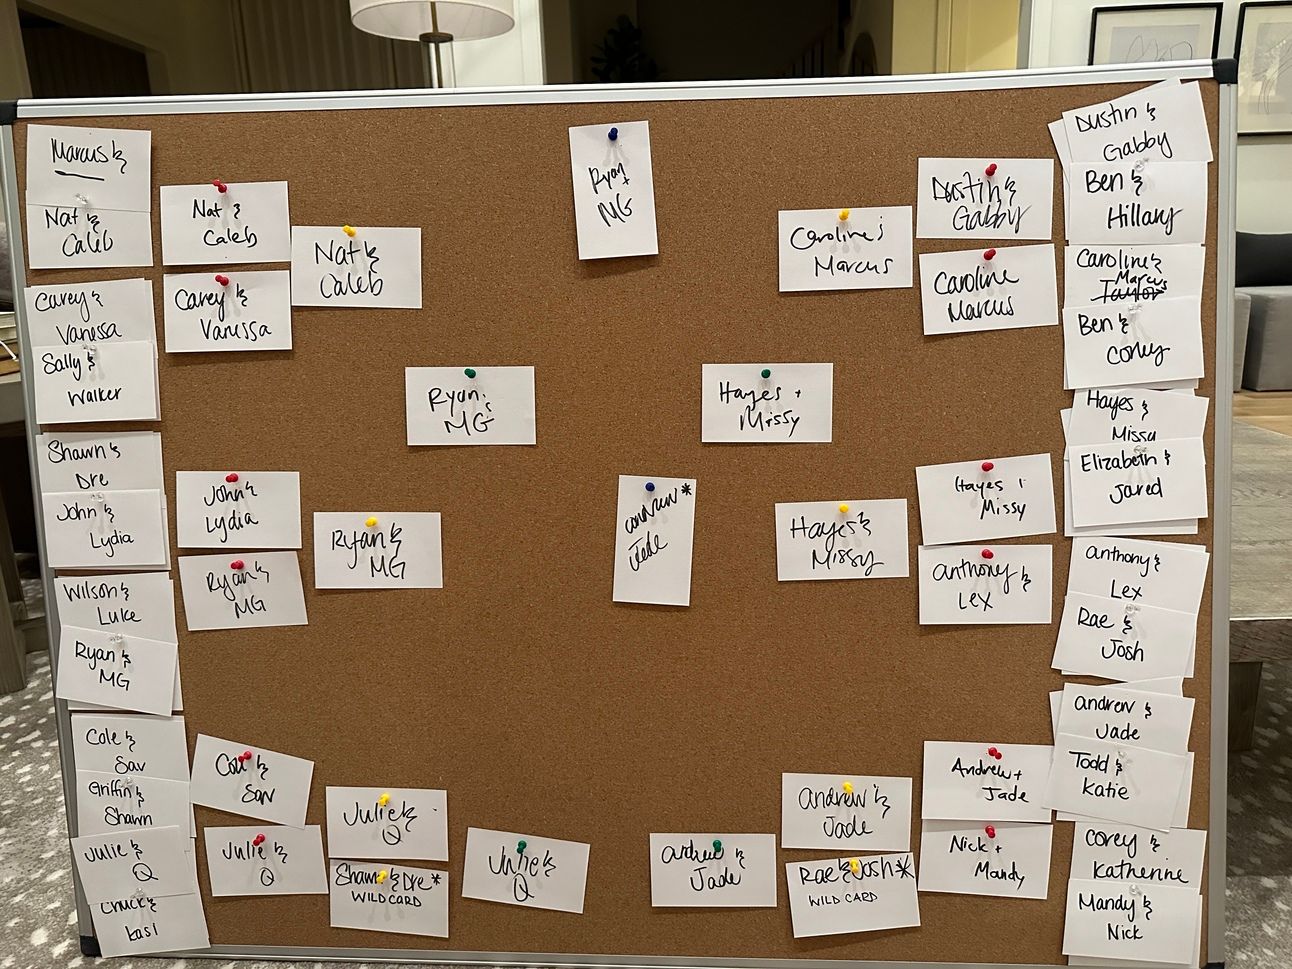 Marcus &
Nat &
Caleb
Carey &
Vanessa
Sally &
Walker
Shawn &
Dre
John &
Lydia
Wilson &
Luke
Ryan &
MG
Cole &
Sav
Griffin &
Shawn
Julie &
Q
Chuck &
Kasi
Nat &
Caleb
Carey &
Vanessa
John &
Lydia
Ryan &
MG
Cole &
Sav
Julie &
Q
Nat &
Caleb
Ryan &
MG
Julie &
Q
Shawn & Dre*
WILD CARD
Ryan &
MG
Julie &
Q
Ryan +
MG
andrew *
Jade
Hayes +
Missy
andrew &
Jade
Caroline &
Marcus
Hayes &
Missy
andrew &
Jade
Rae & Josh *
WILD CARD
Dustin &
Gabby
Caroline
Marcus
Hayes &
Missy
anthony &
Lex
Andrew +
Jade
Nick +
Mandy
Dustin &
Gabby
Ben &
Hillary
Caroline &
Marcus
Taylor
Ben &
Corey
Hayes &
Missy
Elizabeth &
Jared
anthony &
Lex
Rae &
Josh
andrew &
Jade
Todd &
Katie
Corey &
Katherine
Mandy &
Nick